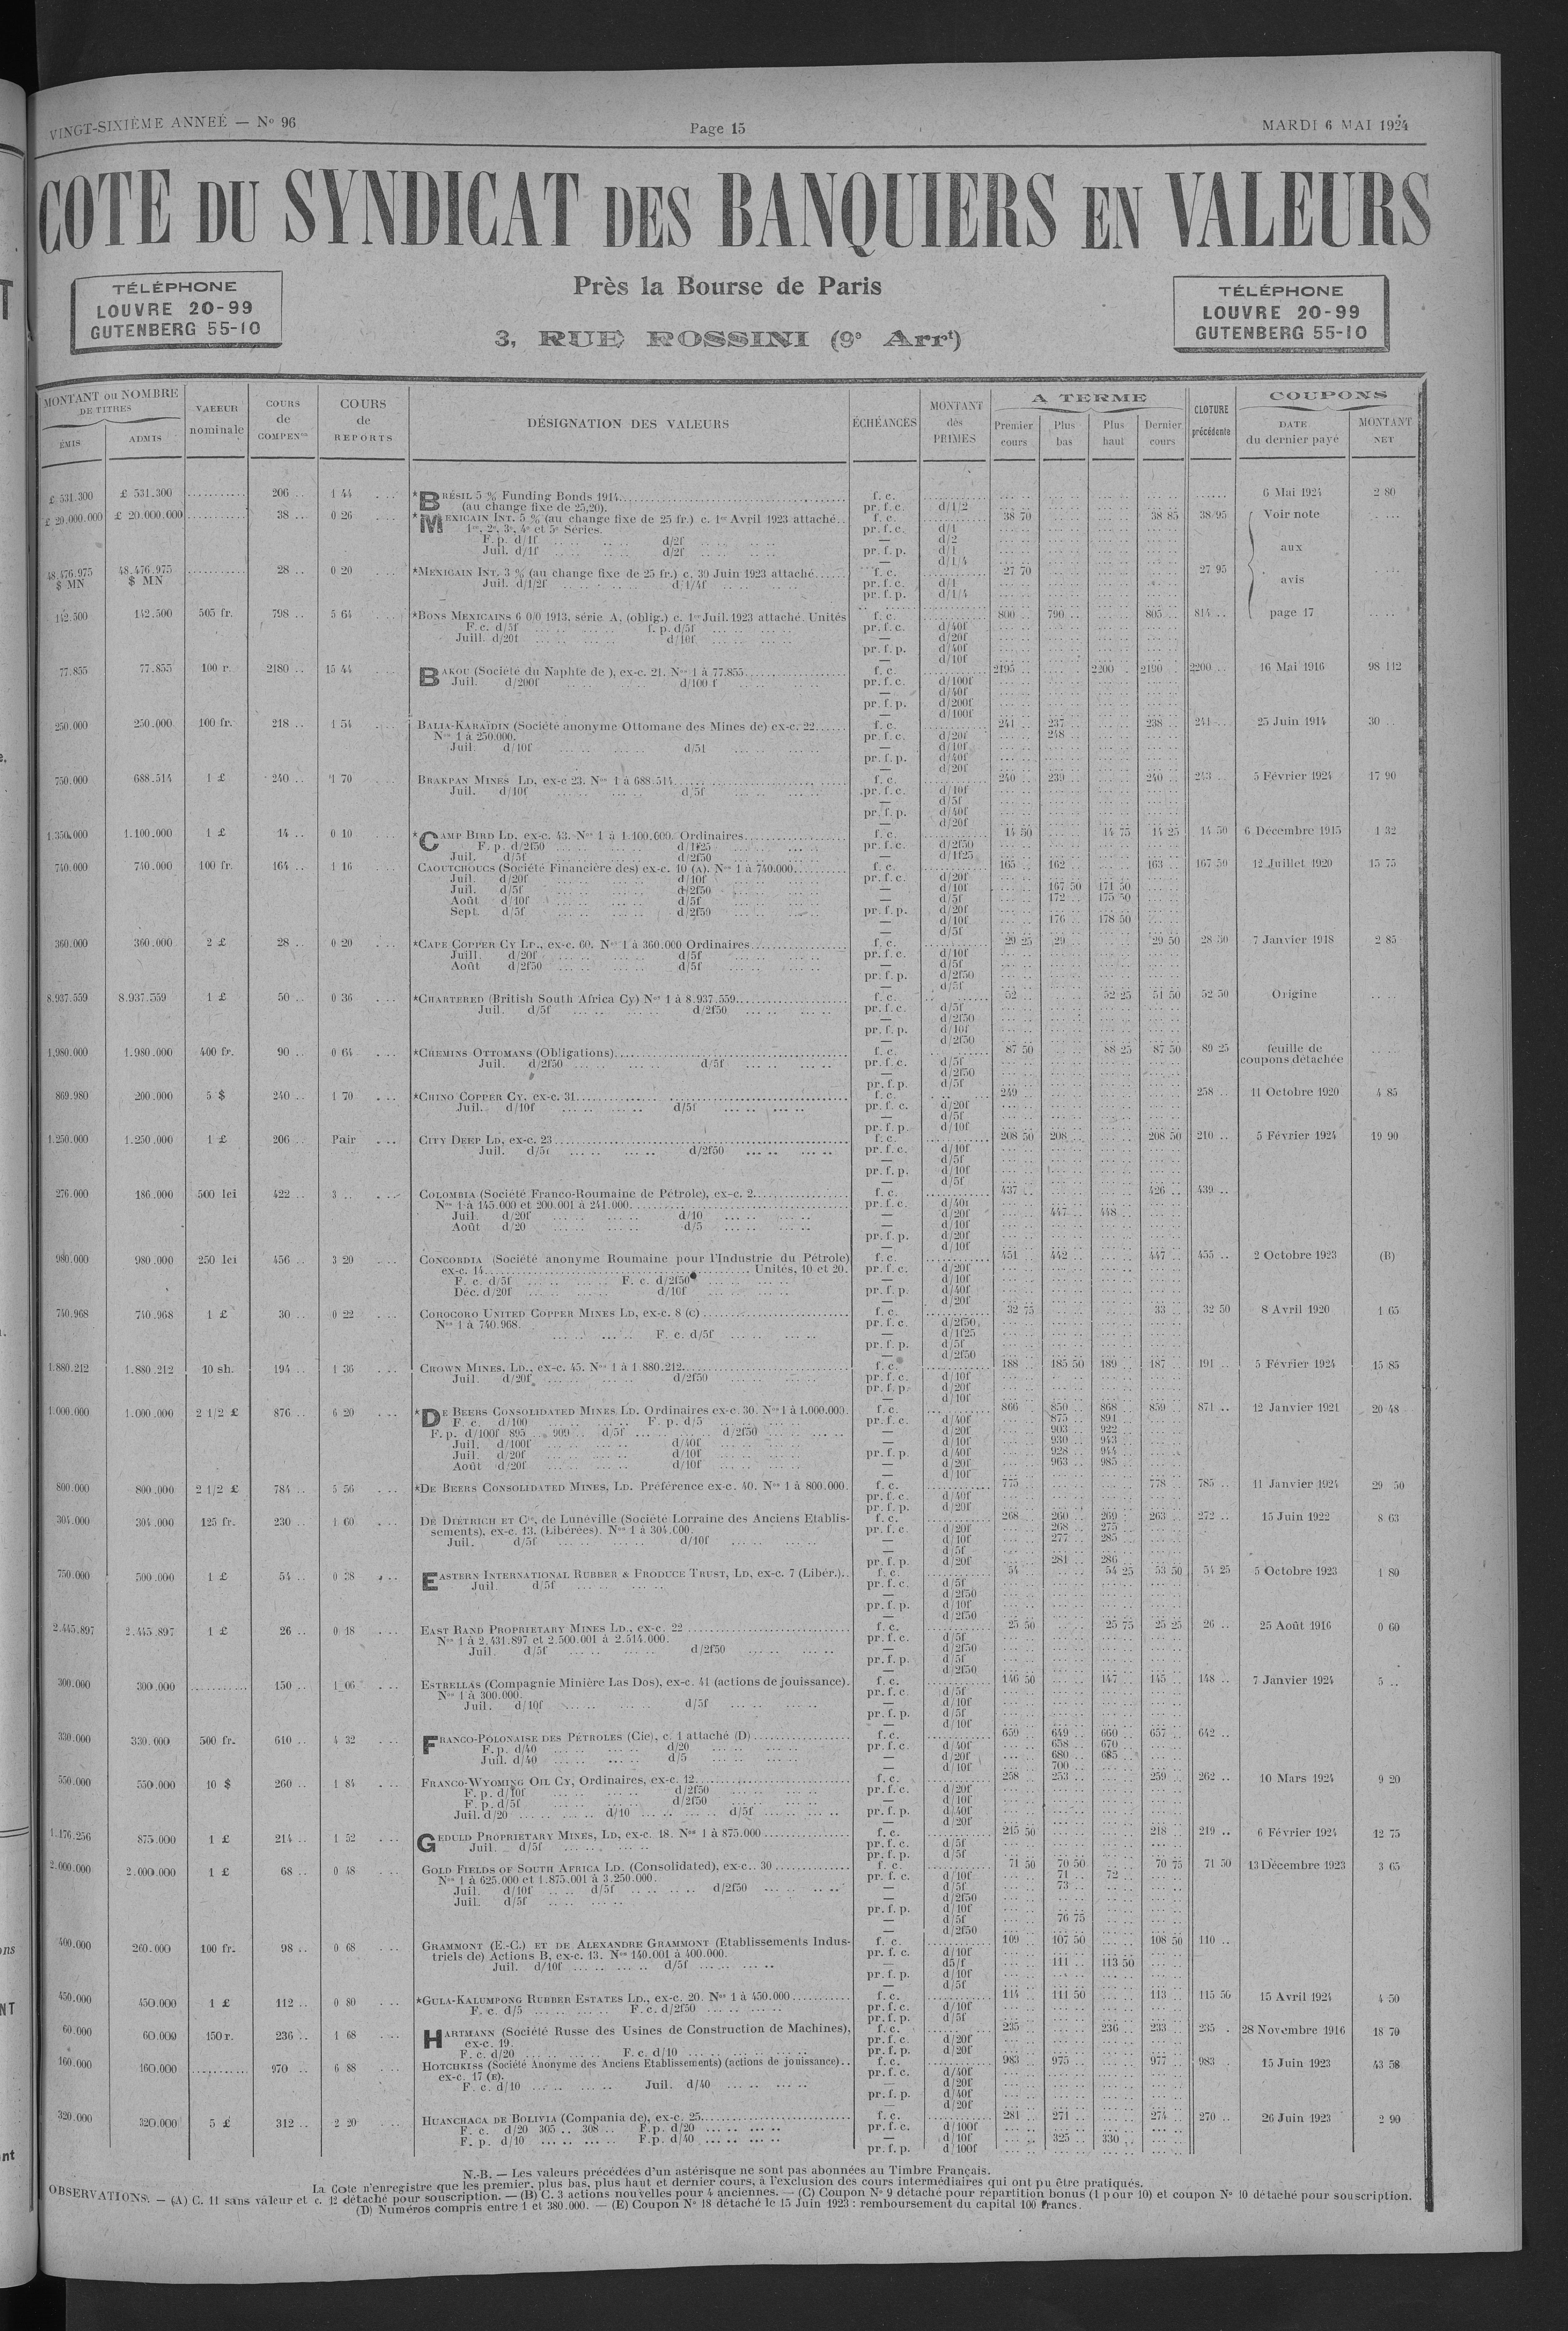 VINGT-SIXIÈME ANNEÉ — No 96
Page 15
MARDI 6 MAI 1924
COTE DU SYNDICAT DES BANQUIERS EN VALEURS
TÉLÉPHONE
LOUVRE 20-99
GUTENBERG 55-10
Près la Bourse de Paris
3, RUE ROSSINI (9e Arrt)
TÉLÉPHONE
LOUVRE 20-99
GUTENBERG 55-10
MONTANT ou NOMBRE DE TITRES
ÉMIS ADMIS
VALEUR nominale
COURS de COMPENon
COURS de REPORTS
DÉSIGNATION DES VALEURS
ÉCHÉANCES
MONTANT des PRIMES
A TERME
Premier cours Plus bas Plus haut Dernier cours
CLOTURE précédente
COUPONS
DATE du dernier payé
MONTANT NET
£ 531.300 £ 531.300 206 1 44 *BRÉSIL 5 % Funding Bonds 1914 f. c. 6 Mai 1924 2 80
(au change fixe de 25,20). pr. f. c. d/1/2
£ 20.000.000 £ 20.000.000 38 0 26 *MEXICAIN INT. 5 % (au change fixe de 25 fr.) c. 1er Avril 1923 attaché f. c. 38 70 38 85 38 95 Voir note
1re, 2e, 3e, 4e et 5e Séries. pr. f. c. d/1
F. p. d/1f d/2f — d/2
Juil. d/1f d/2f pr. f. p. d/1 aux
— d/1/4
48.476.975 $ MN 48.476.975 $ MN 28 0 20 *MEXICAIN INT. 3 % (au change fixe de 25 fr.) c. 30 Juin 1923 attaché f. c. 27 70 27 95
Juil. d/1/2f d/1/4f pr. f. c. d/1 avis
pr. f. p. d/1/4
142.500 142.500 505 fr. 798 5 64 *BONS MEXICAINS 6 0/0 1913, série A, (oblig.) c. 1er Juil. 1923 attaché. Unités f. c. 800 790 805 814 page 17
F. c. d/5f f. p. d/5f pr. f. c. d/40f
Juill. d/20f d/10f — d/20f
pr. f. p. d/40f
— d/10f
77.855 77.855 100 r. 2180 15 44 BAKOU (Société du Naphte de), ex-c. 21. Nos 1 à 77.855 f. c. 2195 2200 2190 2200 16 Mai 1916 98 112
Juil. d/200f d/100 f pr. f. c. d/100f
— d/40f
pr. f. p. d/200f
— d/100f
250.000 250.000 100 fr. 218 1 54 BALIA-KARAÏDIN (Société anonyme Ottomane des Mines de) ex-c. 22 f. c. 241 237 238 241 25 Juin 1914 30
Nos 1 à 250.000. pr. f. c. d/20f 248
Juil. d/10f d/5f — d/10f
pr. f. p. d/40f
— d/20f
750.000 688.514 1 £ 240 1 70 BRAKPAN MINES LD, ex-c 23. Nos 1 à 688.514 f. c. 240 239 240 243 5 Février 1924 17 90
Juil. d/10f d/5f pr. f. c. d/10f
— d/5f
pr. f. p. d/40f
— d/20f
1.350.000 1.100.000 1 £ 14 0 10 *CAMP BIRD LD, ex-c. 43. Nos 1 à 1.100.000. Ordinaires f. c. 14 50 14 75 14 25 14 50 6 Décembre 1915 1 32
F. p. d/2f50 d/1f25 pr. f. c. d/2f50
Juil. d/5f d/2f50 — d/1f25
740.000 740.000 100 fr. 164 1 16 CAOUTCHOUCS (Société Financière des) ex-c. 10 (A). Nos 1 à 740.000 f. c. 165 162 163 167 50 12 Juillet 1920 15 75
Juil. d/20f d/10f pr. f. c. d/20f
Juil. d/5f d/2f50 — d/10f 167 50 171 50
Août d/10f d/5f — d/5f 172 175 50
Sept. d/5f d/2f50 pr. f. p. d/20f
— d/10f 176 178 50
— d/5f
360.000 360.000 2 £ 28 0 20 *CAPE COPPER CY LD., ex-c. 60. Nos 1 à 360.000 Ordinaires f. c. 29 25 29 29 50 28 50 7 Janvier 1918 2 85
Juill. d/20f d/5f pr. f. c. d/10f
Août d/2f50 d/5f — d/5f
pr. f. p. d/2f50
— d/5f
8.937.559 8.937.559 1 £ 50 0 36 *CHARTERED (British South Africa Cy) Nos 1 à 8.937.559 f. c. 52 52 25 51 50 52 50 Origine
Juil. d/5f d/2f50 pr. f. c. d/5f
— d/2f50
pr. f. p. d/10f
— d/2f50
1.980.000 1.980.000 400 fr. 90 0 64 *CHEMINS OTTOMANS (Obligations) f. c. 87 50 88 25 87 50 89 25 feuille de
Juil. d/2f50 d/5f pr. f. c. d/5f coupons détachée
— d/2f50
pr. f. p. d/5f
869.980 200.000 5 $ 240 1 70 *CHINO COPPER CY, ex-c. 31 f. c. 249 258 11 Octobre 1920 4 85
Juil. d/10f d/5f pr. f. c. d/20f
— d/5f
pr. f. p. d/10f
1.250.000 1.250.000 1 £ 206 Pair CITY DEEP LD, ex-c. 23 f. c. 208 50 208 208 50 210 5 Février 1924 19 90
Juil. d/5f d/2f50 pr. f. c. d/10f
— d/5f
pr. f. p. d/10f
— d/5f
276.000 186.000 500 lei 422 3 COLOMBIA (Société Franco-Roumaine de Pétrole), ex-c. 2 f. c. 437 426 439
Nos 1 à 145.000 et 200.001 à 241.000 pr. f. c. d/40f
Juil. d/20f d/10 — d/20f 447 448
Août d/20 d/5 — d/10f
pr. f. p. d/20f
— d/10f
980.000 980.000 250 lei 456 3 20 CONCORDIA (Société anonyme Roumaine pour l'Industrie du Pétrole) f. c. 451 442 447 455 2 Octobre 1923 (B)
ex-c. 14 Unités, 10 et 20. pr. f. c. d/20f
F. c. d/5f F. c. d/2f50 — d/10f
Déc. d/20f d/10f pr. f. p. d/40f
— d/20f
740.968 740.968 1 £ 30 0 22 COROCORO UNITED COPPER MINES LD, ex-c. 8 (C) f. c. 32 75 33 32 50 8 Avril 1920 1 65
Nos 1 à 740.968. pr. f. c. d/2f50
F. c. d/5f — d/1f25
pr. f. p. d/5f
— d/2f50
1.880.212 1.880.212 10 sh. 194 1 36 CROWN MINES, LD., ex-c. 45. Nos 1 à 1.880.212 f. c. 188 185 50 189 187 191 5 Février 1924 15 85
Juil. d/20f d/2f50 pr. f. c. d/10f
pr. f. p. d/20f
— d/10f
1.000.000 1.000.000 2 1/2 £ 876 6 20 *DE BEERS CONSOLIDATED MINES LD. Ordinaires ex-c. 30. Nos 1 à 1.000.000. f. c. 866 850 868 859 871 12 Janvier 1921 20 48
F. c. d/100 F. p. d/5 pr. f. c. d/40f 875 891
F. p. d/100f 895 909 d/5f d/2f50 — d/20f 903 922
Juil. d/100f d/40f — d/10f 930 943
Juil. d/20f d/10f pr. f. p. d/40f 928 944
Août d/20f d/10f — d/20f 963 985
— d/10f
800.000 800.000 2 1/2 £ 784 5 56 *DE BEERS CONSOLIDATED MINES, LD. Préférence ex-c. 40. Nos 1 à 800.000. f. c. 775 778 785 11 Janvier 1924 29 50
pr. f. c. d/40f
pr. f. p. d/20f
304.000 304.000 125 fr. 230 1 60 DE DIÉTRICH ET Cie, de Lunéville (Société Lorraine des Anciens Etablis- f. c. 268 260 269 263 272 15 Juin 1922 8 63
sements), ex-c. 13. (Libérées). Nos 1 à 304.000. pr. f. c. d/20f 268 275
Juil. d/5f d/10f — d/10f 277 285
— d/5f
pr. f. p. d/20f 281 286
750.000 500.000 1 £ 54 0 38 EASTERN INTERNATIONAL RUBBER & PRODUCE TRUST, LD, ex-c. 7 (Libér.) f. c. 54 54 25 53 50 54 25 5 Octobre 1923 1 80
Juil. d/5f pr. f. c. d/5f
— d/2f50
pr. f. p. d/10f
— d/2f50
2.445.897 2.445.897 1 £ 26 0 18 EAST RAND PROPRIETARY MINES LD., ex-c. 22 f. c. 25 50 25 75 25 25 26 25 Août 1916 0 60
Nos 1 à 2.431.897 et 2.500.001 à 2.514.000. pr. f. c. d/5f
Juil. d/5f d/2f50 — d/2f50
pr. f. p. d/5f
— d/2f50
300.000 300.000 150 1 06 ESTRELLAS (Compagnie Minière Las Dos), ex-c. 41 (actions de jouissance). f. c. 146 50 147 145 148 7 Janvier 1924 5
Nos 1 à 300.000. pr. f. c. d/5f
Juil. d/10f d/5f — d/10f
pr. f. p. d/5f
— d/10f
330.000 330.000 500 fr. 610 4 32 FRANCO-POLONAISE DES PÉTROLES (Cie), c. 1 attaché (D) f. c. 659 649 660 657 642
F. p. d/40 d/20 pr. f. c. d/40f 658 670
Juil. d/40 d/5 — d/20f 680 685
— d/10f 700
550.000 550.000 10 $ 260 1 84 FRANCO-WYOMING OIL CY, Ordinaires, ex-c. 12 f. c. 258 253 259 262 10 Mars 1924 9 20
F. p. d/10f d/2f50 pr. f. c. d/20f
F. p. d/5f d/2f50 — d/10f
Juil. d/20 d/10 d/5f pr. f. p. d/40f
— d/20f
1.176.256 875.000 1 £ 214 1 52 GEDULD PROPRIETARY MINES, LD, ex-c. 18. Nos 1 à 875.000 f. c. 215 50 218 219 6 Février 1924 12 75
Juil. d/5f pr. f. c. d/5f
pr. f. p. d/5f
2.000.000 2.000.000 1 £ 68 0 48 GOLD FIELDS OF SOUTH AFRICA LD. (Consolidated), ex-c. 30 f. c. 71 50 70 50 70 75 71 50 13 Décembre 1923 3 65
Nos 1 à 625.000 et 1.875.001 à 3.250.000. pr. f. c. d/10f 71 72
Juil. d/10f d/5f d/2f50 — d/5f 73
Juil. d/5f — d/2f50
pr. f. p. d/10f
— d/5f 76 75
— d/2f50
400.000 260.000 100 fr. 98 0 68 GRAMMONT (E.-C.) ET DE ALEXANDRE GRAMMONT (Etablissements Indus- f. c. 109 107 50 108 50 110
triels de) Actions B, ex-c. 13. Nos 140.001 à 400.000. pr. f. c. d/10f
Juil. d/10f d/5f — d5/f 111 113 50
pr. f. p. d/10f
— d/5f
450.000 450.000 1 £ 112 0 80 *GULA-KALUMPONG RUBBER ESTATES LD., ex-c. 20. Nos 1 à 450.000 f. c. 114 111 50 113 115 50 15 Avril 1924 4 50
F. c. d/5 F. c. d/2f50 pr. f. c. d/10f
pr. f. p. d/5f
60.000 60.000 150 r. 236 1 68 HARTMANN (Société Russe des Usines de Construction de Machines), f. c. 235 236 233 235 28 Novembre 1916 18 70
ex-c. 19. pr. f. c. d/20f
F. c. d/20 F. c. d/10 pr. f. p. d/20f
160.000 160.000 970 6 88 HOTCHKISS (Société Anonyme des Anciens Etablissements) (actions de jouissance) f. c. 983 975 977 983 15 Juin 1923 43 58
ex-c. 17 (E). pr. f. c. d/40f
F. c. d/10 Juil. d/40 — d/20f
pr. f. p. d/40f
— d/20f
320.000 320.000 5 £ 312 2 20 HUANCHACA DE BOLIVIA (Compania de), ex-c. 25 f. c. 281 271 274 270 26 Juin 1923 2 90
F. c. d/20 305 308 F.p. d/20 pr. f. c. d/100f
F. p. d/10 F.p. d/40 — d/10f 325 330
pr. f. p. d/100f
N.-B. — Les valeurs précédées d'un astérisque ne sont pas abonnées au Timbre Français.
La Cote n'enregistre que les premier, plus bas, plus haut et dernier cours, à l'exclusion des cours intermédiaires qui ont pu être pratiqués.
OBSERVATIONS. — (A) C. 11 sans valeur et c. 12 détaché pour souscription. — (B) C. 3 actions nouvelles pour 4 anciennes. — (C) Coupon No 9 détaché pour répartition bonus (1 pour 10) et coupon No 10 détaché pour souscription.
(D) Numéros compris entre 1 et 380.000. — (E) Coupon No 18 détaché le 15 Juin 1923 : remboursement du capital 100 francs.